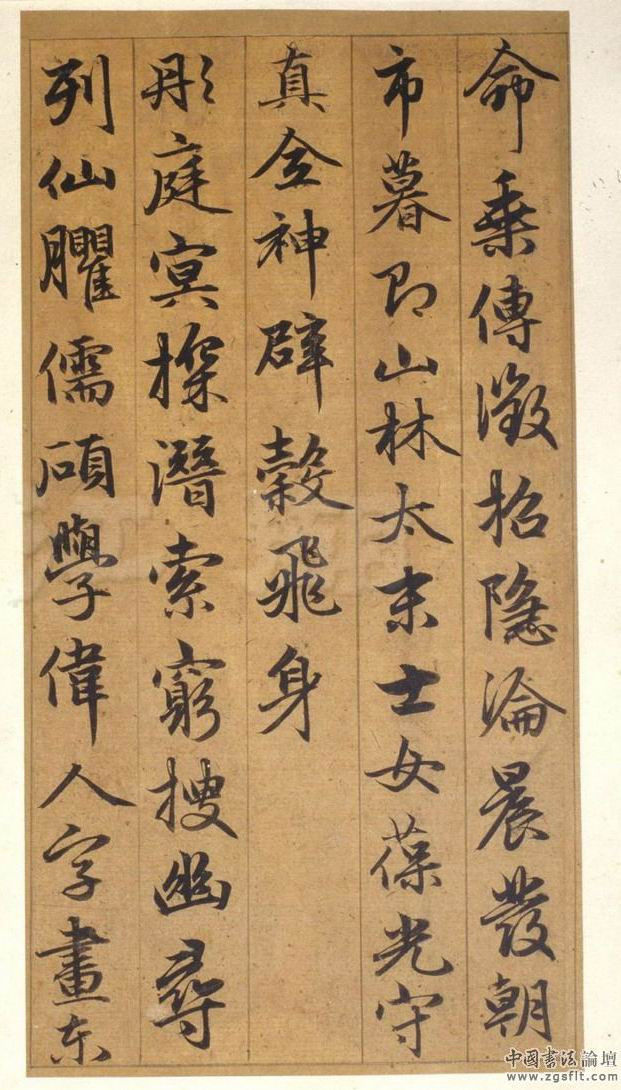 命乗傳徵招隱淪晨發朝
市暮即山林太末士女葆光守
真全神辟穀飛身
彤庭冥探潛索窮搜幽尋
列仙臞儒碩學偉人字畫東
中国书法論壇
www.zgsflt.com